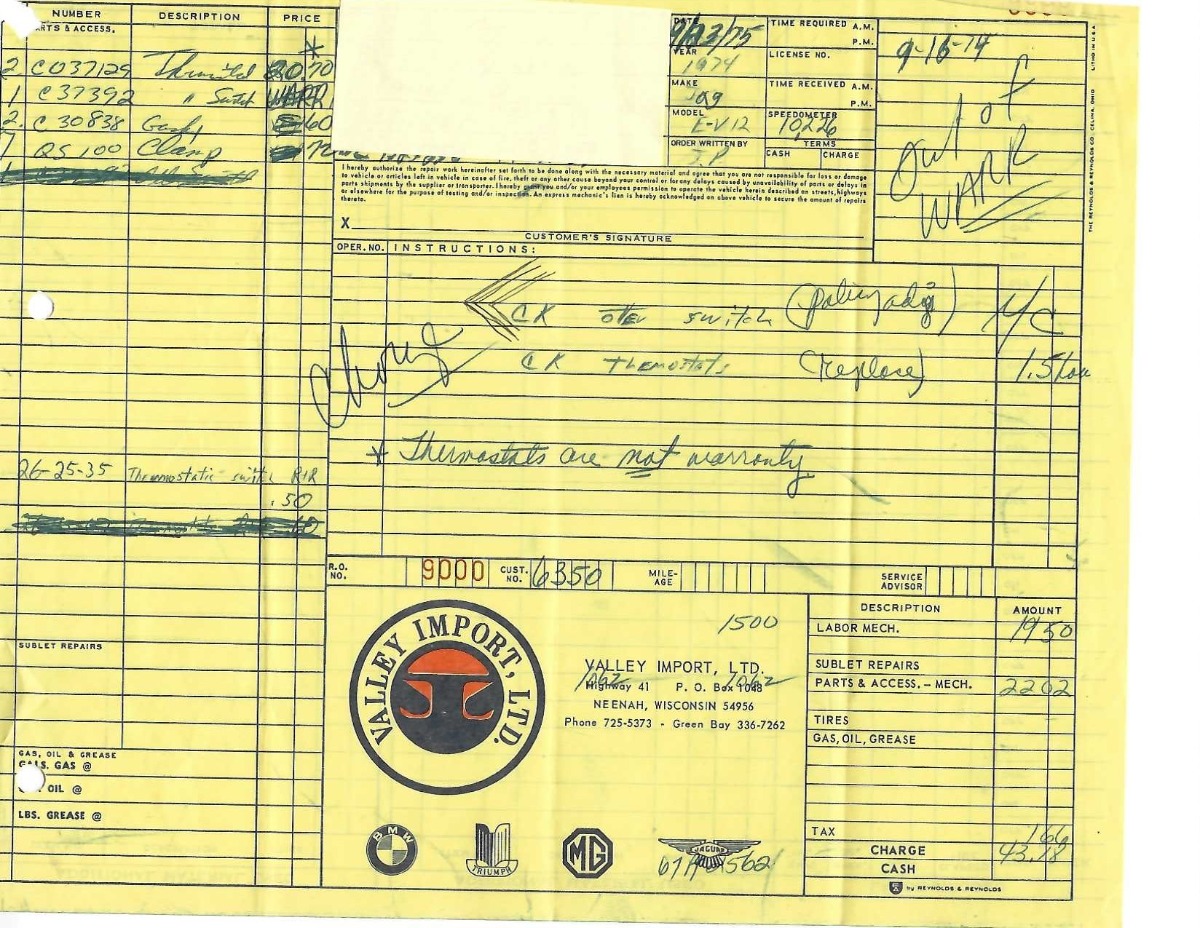 NUMBER DESCRIPTION PRICE
PARTS & ACCESS.
*
2 C037129 20.70
1 C37392 " Switch WARR
2 C 30838 60
1 QS 100 Clamp 72
26-25-35 Thermostatic switch R&R
.50
SUBLET REPAIRS
GAS, OIL & GREASE
GALS. GAS @
OIL @
LBS. GREASE @
DATE 9/23/75
YEAR 1974
MAKE Jag
MODEL E-V12
ORDER WRITTEN BY J.P
TIME REQUIRED A.M.
P.M.
LICENSE NO.
TIME RECEIVED A.M.
P.M.
SPEEDOMETER
10226
TERMS
CASH CHARGE
9-16-74
Out of
WARR
I hereby authorize the repair work hereinafter set forth to be done along with the necessary material and agree that you are not responsible for loss or damage
to vehicle or articles left in vehicle in case of fire, theft or any other cause beyond your control or for any delays caused by unavailability of parts or delays in
parts shipments by the supplier or transporter. I hereby grant you and/or your employees permission to operate the vehicle herein described on streets, highways
or elsewhere for the purpose of testing and/or inspection. An express mechanic's lien is hereby acknowledged on above vehicle to secure the amount of repairs
thereto.
X
CUSTOMER'S SIGNATURE
OPER. NO. INSTRUCTIONS:
CK otter switch (policy adj) N/C
Charge
CK Themostats (replace) 1.5 hou
* Thermostats are not warranty
R.O. NO. 9000 CUST. NO. 6350 MILEAGE SERVICE ADVISOR
VALLEY IMPORT, LTD.
1500
VALLEY IMPORT, LTD.
1062 1062
Highway 41 P. O. Box 1048
NEENAH, WISCONSIN 54956
Phone 725-5373 - Green Bay 336-7262
BMW
TRIUMPH
MG
JAGUAR
DESCRIPTION AMOUNT
LABOR MECH. 19 50
SUBLET REPAIRS
PARTS & ACCESS. - MECH. 22 02
TIRES
GAS, OIL, GREASE
TAX 1 66
CHARGE 43.18
CASH
by REYNOLDS & REYNOLDS
THE REYNOLDS & REYNOLDS CO., CELINA, OHIO LITHO IN U.S.A.